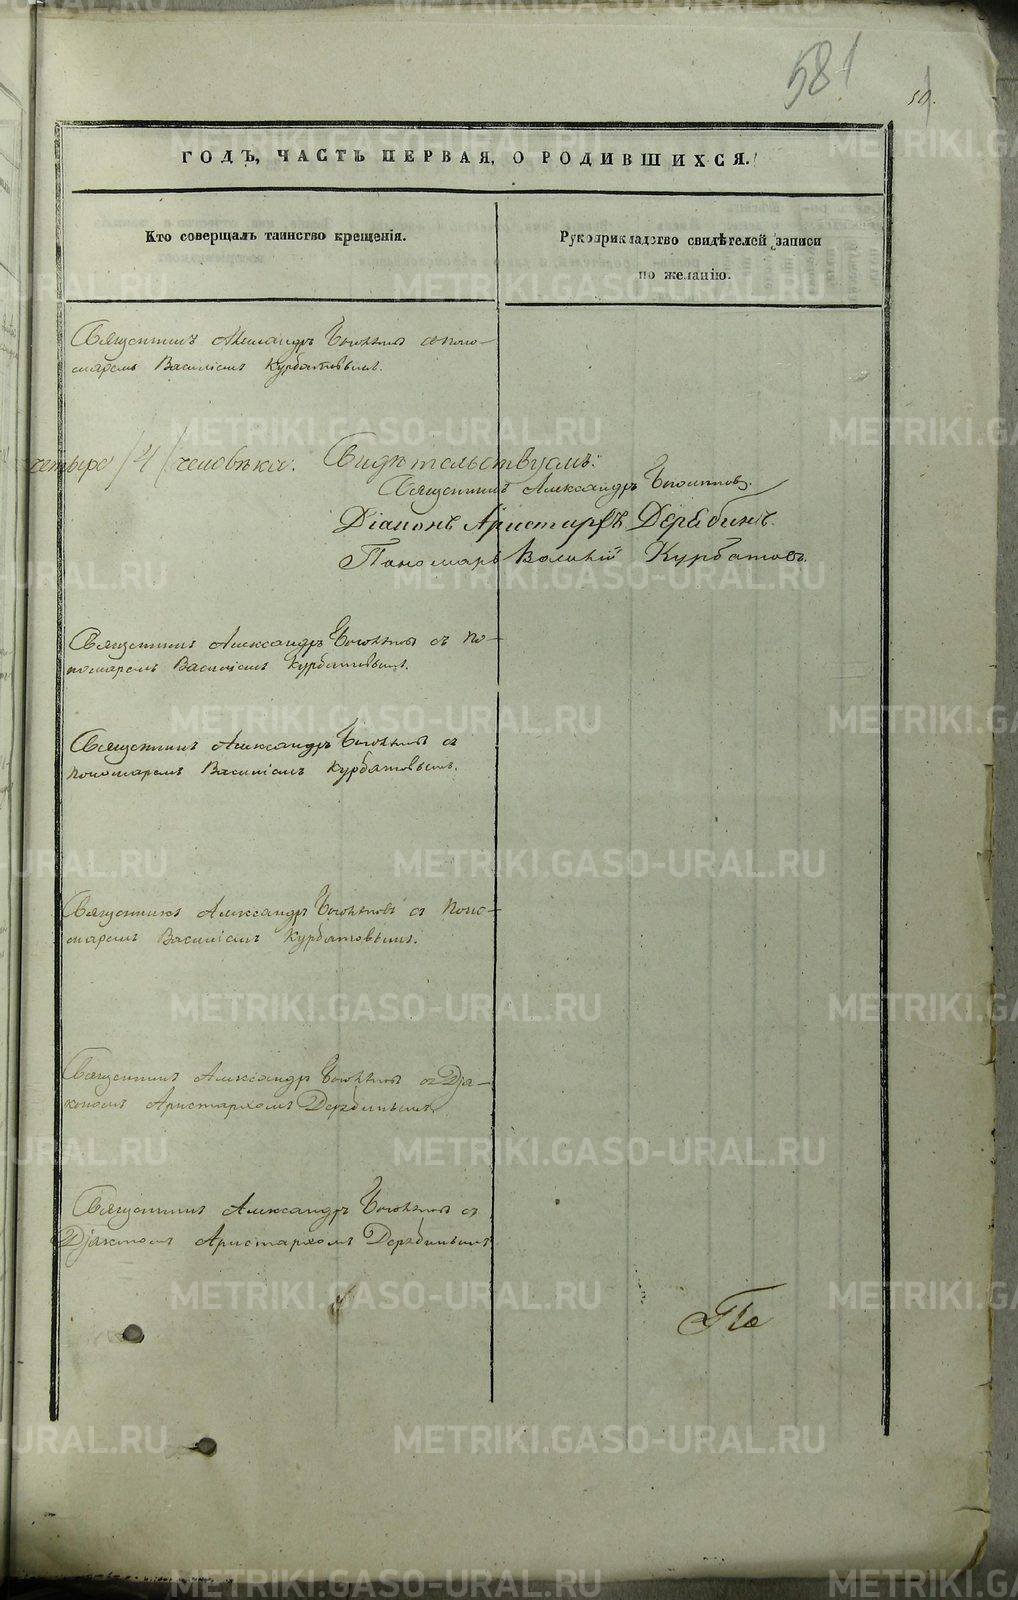 581
50.
ГОДЪ, ЧАСТЬ ПЕРВАЯ, О РОДИВШИХСЯ.
Кто совершалъ таинство крещенія.
Рукоприкладство свидѣтелей записи
по желанію.
Священникъ Александръ съ поно-
маремъ Василіемъ Курбатовымъ.
четыре /4/ человѣка. Свидѣтельствуемъ:
Священникъ Александръ
Діаконъ Аристархъ Дерябинъ.
Пономарь Василій Курбатовъ.
Священникъ Александръ съ по-
номаремъ Василіемъ Курбатовымъ.
Священникъ Александръ съ
пономаремъ Василіемъ Курбатовымъ.
Священникъ Александръ съ поно-
маремъ Василіемъ Курбатовымъ.
Священникъ Александръ съ Діа-
кономъ Аристархомъ Дерябинымъ.
Священникъ Александръ съ
Діакономъ Аристархомъ Дерябинымъ
По
METRIKI.GASO-URAL.RU